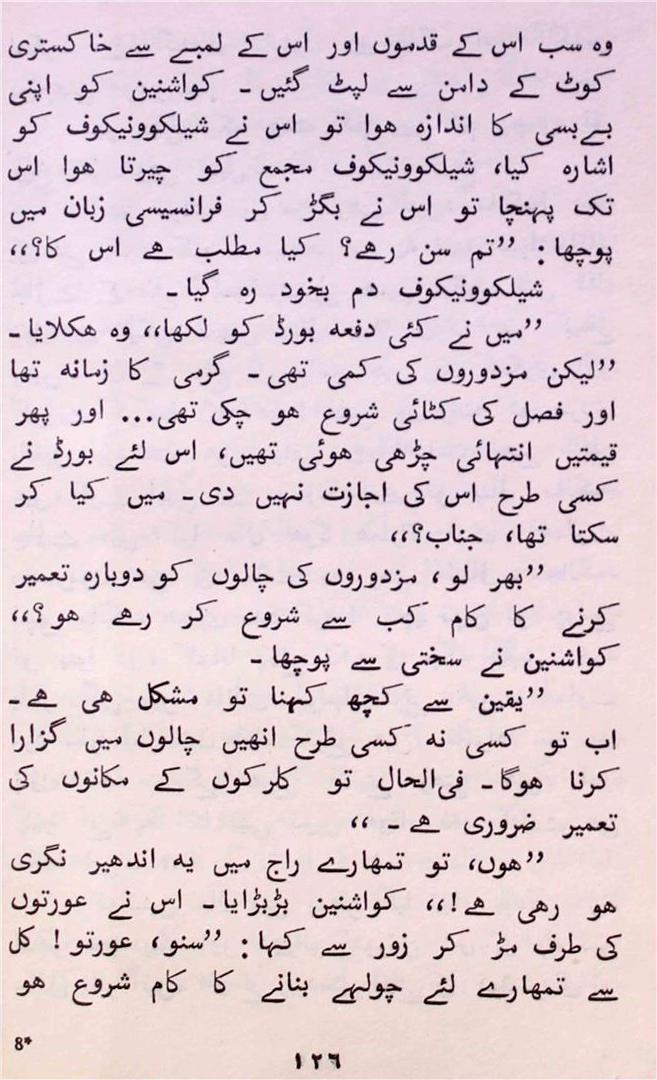 وہ سب اس کے قدموں اور اس کے لمبے سے خاکستری
کوٹ کے دامن سے لپٹ گئیں۔ کواشنین کو اپنی
بےبسی کا اندازہ ہوا تو اس نے شیلکوونیکوف کو
اشارہ کیا، شیلکوونیکوف مجمع کو چیرتا ہوا اس
تک پہنچا تو اس نے بگڑ کر فرانسیسی زبان میں
پوچھا: ”تم سن رہے؟ کیا مطلب ہے اس کا؟،،
شیلکوونیکوف دم بخود رہ گیا۔
”میں نے کئی دفعہ بورڈ کو لکھا،، وہ ہکلایا۔
”لیکن مزدوروں کی کمی تھی۔ گرمی کا زمانہ تھا
اور فصل کی کٹائی شروع ہو چکی تھی... اور پھر
قیمتیں انتہائی چڑھی ہوئی تھیں، اس لئے بورڈ نے
کسی طرح اس کی اجازت نہیں دی۔ میں کیا کر
سکتا تھا، جناب؟،،
”پھر لو، مزدوروں کی چالوں کو دوبارہ تعمیر
کرنے کا کام کب سے شروع کر رہے ہو؟،،
کواشنین نے سختی سے پوچھا۔
”یقین سے کچھ کہنا تو مشکل ہی ہے۔
اب تو کسی نہ کسی طرح انھیں چالوں میں گزارا
کرنا ہوگا۔ فی‌الحال تو کلرکوں کے مکانوں کی
تعمیر ضروری ہے۔،،
”ہوں، تو تمہارے راج میں یہ اندھیر نگری
ہو رہی ہے!،، کواشنین بڑبڑایا۔ اس نے عورتوں
کی طرف مڑ کر زور سے کہا: ”سنو، عورتو! کل
سے تمھارے لئے چولہے بنانے کا کام شروع ہو
8*
۱۲٦